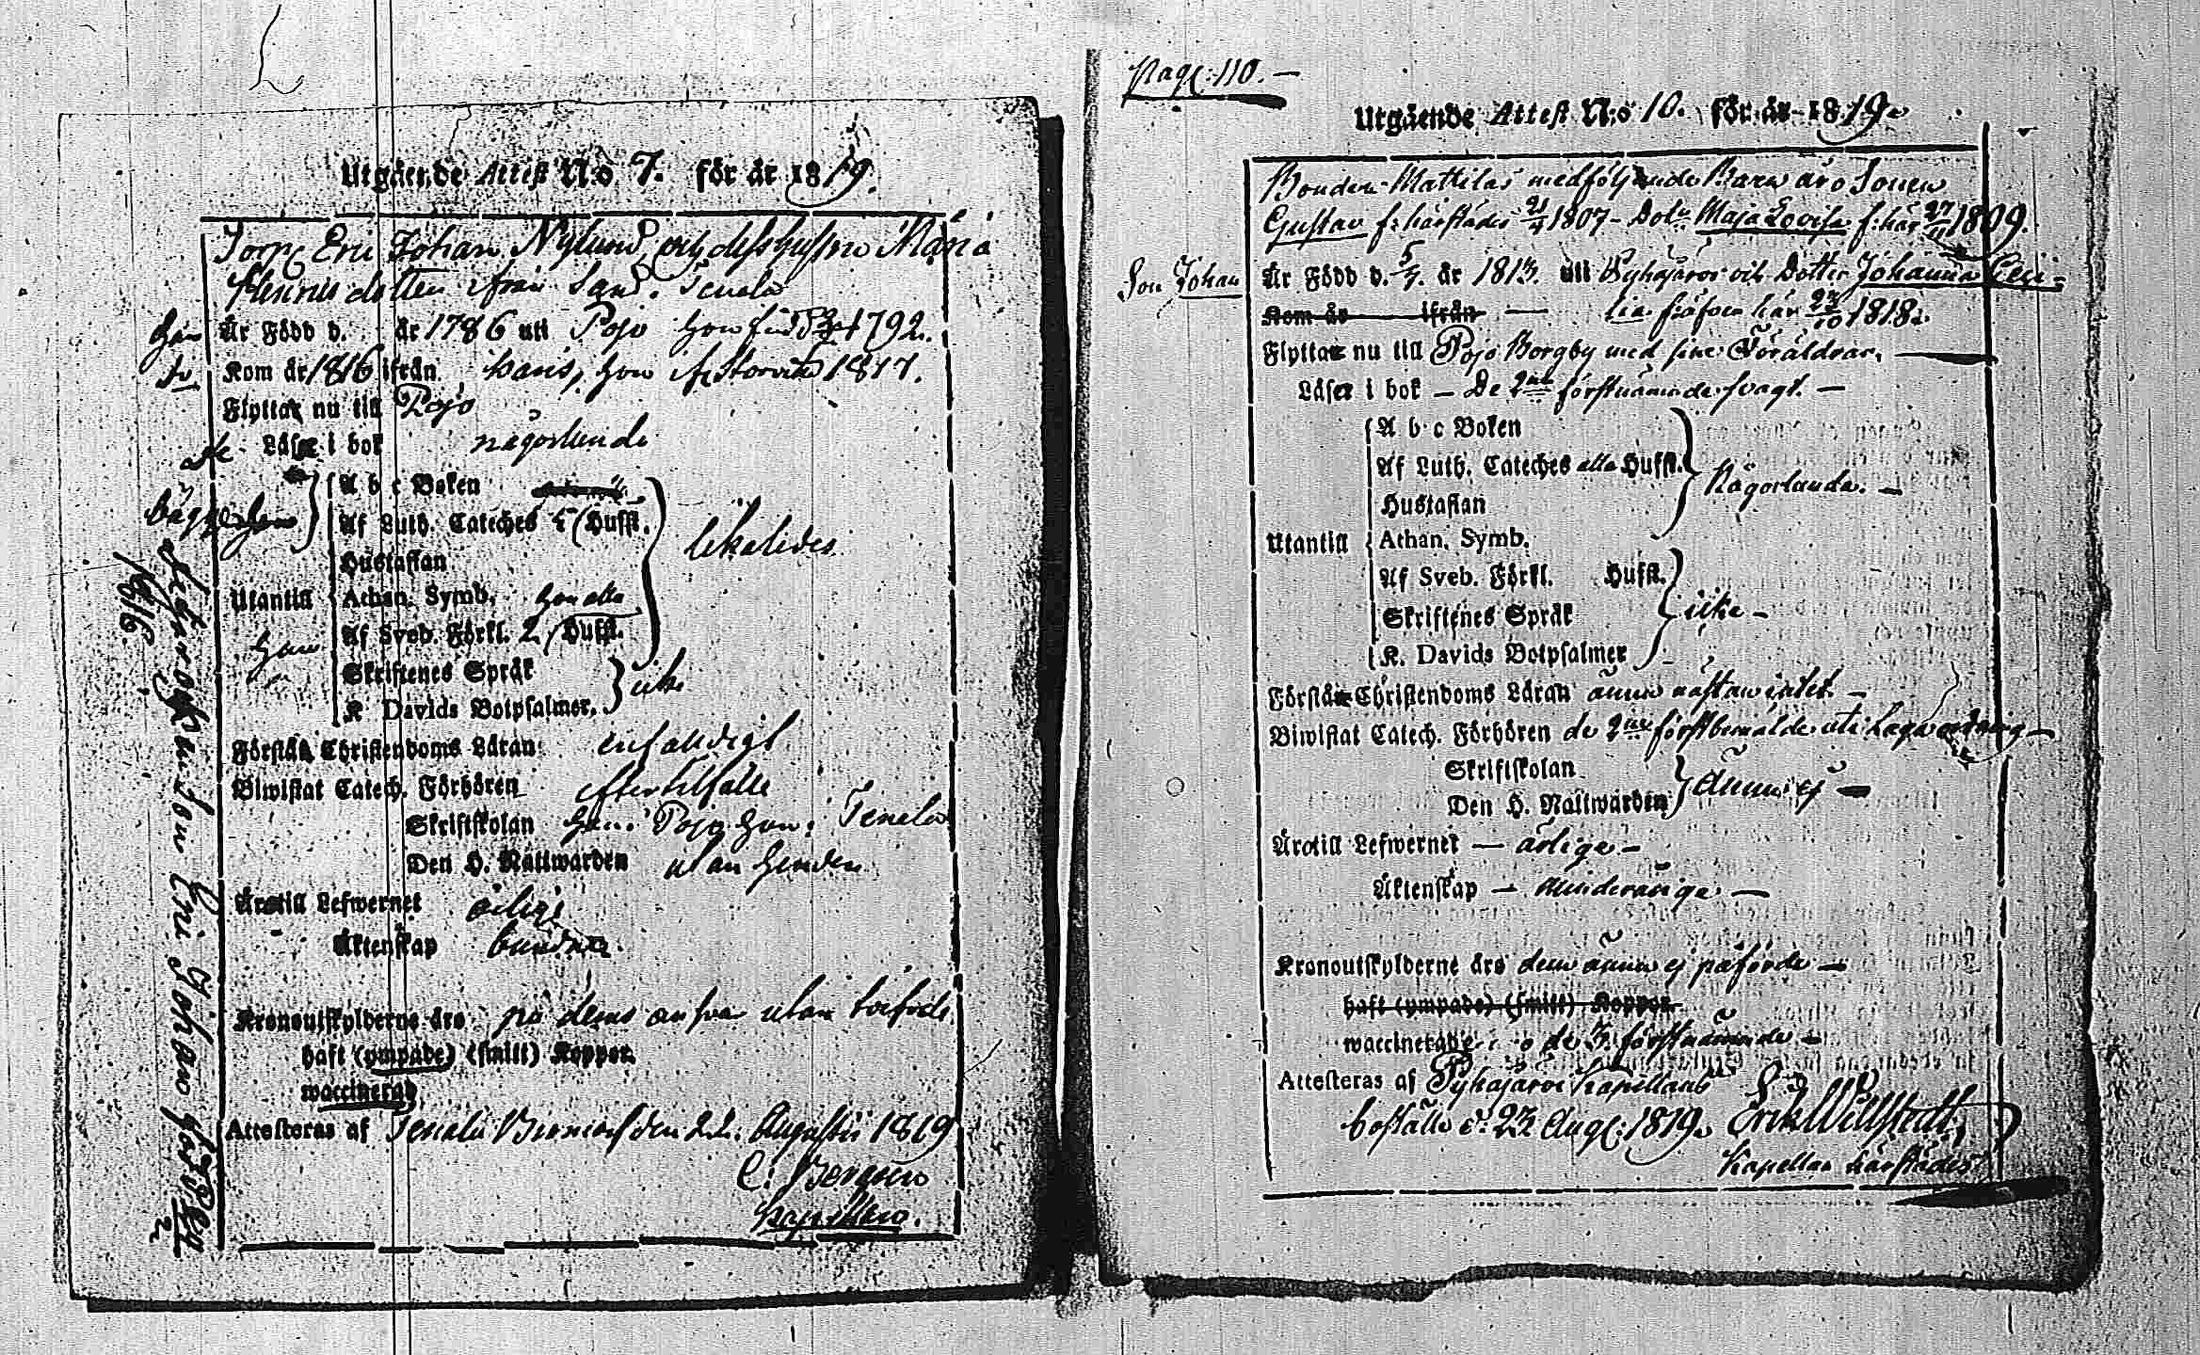 Utgående Attest N:o 7. för år 1819.
Eric Johan Nylund och dess hustru Maria
Henricsdotter ifrån Sand. Tenala
Är Född d. år 1786 uti Pojo hon 1792.
Kom år 1816 ifrån Karis, hon 1817.
Flyttar nu till Pojo
Läser i bok någorlunda
A b c Boken
Af Luth. Cateches 5 Hufst.
Hustaflan
Utantill Athan. Symb. hon alla
Af Sveb. Förkl. 2 Hufst.
likaledes
Skriftenes Språk
K. Davids Botpsalmer.
icke
Förstår Christendoms Läran enfaldigt
Biwistat Catech. Förhören efter tilfälle
Skriftskolan han i Pojo hon i Tenala
Den H. Nattwarden utan hinder
Äro till Lefwernet ärliga
Äktenskap bundne
Kronoutskylderne äro på deras ansvar utan
haft (ympade) (smitt) Koppor.
waccinerad
Attesteras af Tenala den 22. Augusti 1819
C:
Kapellan.
Eric Johan
1816.
Pag: 110. —
Utgående Attest N:o 10. för år 1819.
Bonden Mattilas medföljande Barn äro Sonen
Gustav f: härstädes 21/4 1807 – Dot: Maja Lovisa f: här 27/11 1809.
Son Johan Är Född d. 5/7. år 1813. uti Pyhäjärvi och Dotter Johanna Ceci-
Kom år ifrån — lia född här 23/10 1818.
Flyttar nu till Pojo Borgby med sine Föräldrar. —
Läser i bok – De 2ne förstnämnde svagt. —
A b c Boken
Af Luth. Cateches alla Hufst.
Hustaflan
Någorlunda. —
Utantill Athan. Symb.
Af Sveb. Förkl. Hufst.
Skriftenes Språk
icke —
K. Davids Botpsalmer
Förstår Christendoms Läran ännu nästan intet —
Biwistat Catech. Förhören de 2ne förstbemälde uti laga ordning —
Skriftskolan
Den H. Nattwarden
ännu ej —
Äro till Lefwernet — ärliga —
Äktenskap — minderåriga —
Kronoutskylderne äro dem ännu ej påförde —
haft (ympade) (smitt) Koppor
waccinerade de 3. förstnämnde —
Attesteras af Pyhäjärvi Kapellans
boställe d: 23 Aug: 1819. Erik Willstedt,
Kapellan härstädes